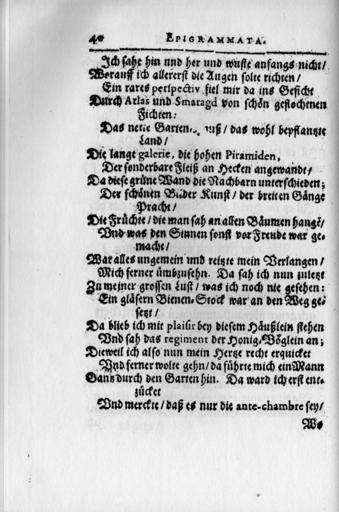 40 EPIGRAMMATA.
Ich sahe hin und her und wuste anfangs nicht/
Worauff ich allererst die Augen solte richten/
Ein rares perspectiv fiel mir da ins Gesicht
Durch Atlas und Smaragd von schön geflochtenen
Fichten:
Das nette Garten- / das wohl bepflantzte
Land/
Die lange galerie, die hohen Piramiden,
Der sonderbare Fleiß an Hecken angewandt/
Da diese grüne Wand die Nachbarn unterschieden;
Der schönen Bilder Kunst/ der breiten Gänge
Pracht/
Die Früchte/ die man sah an allen Bäumen hangē/
Und was den Sinnen sonst vor Freude war ge-
macht/
War alles ungemein und reitzte mein Verlangen/
Mich ferner ümbzusehn. Da sah ich nun zuletzt
Zu meiner grossen Lust/ was ich noch nie gesehen:
Ein gläsern Bienen-Stock war an den Weg ge-
setzt/
Da blieb ich mit plaisir bey diesem Häußlein stehen
Und sah das regiment der Honig-Vöglein an;
Dieweil ich also nun mein Hertze recht erquicket
Und ferner wolte gehn/ da führte mich ein Mann
Gantz durch den Garten hin. Da ward ich erst ent-
zücket
Und merckte/ daß es nur die ante-chambre sey/
Wo